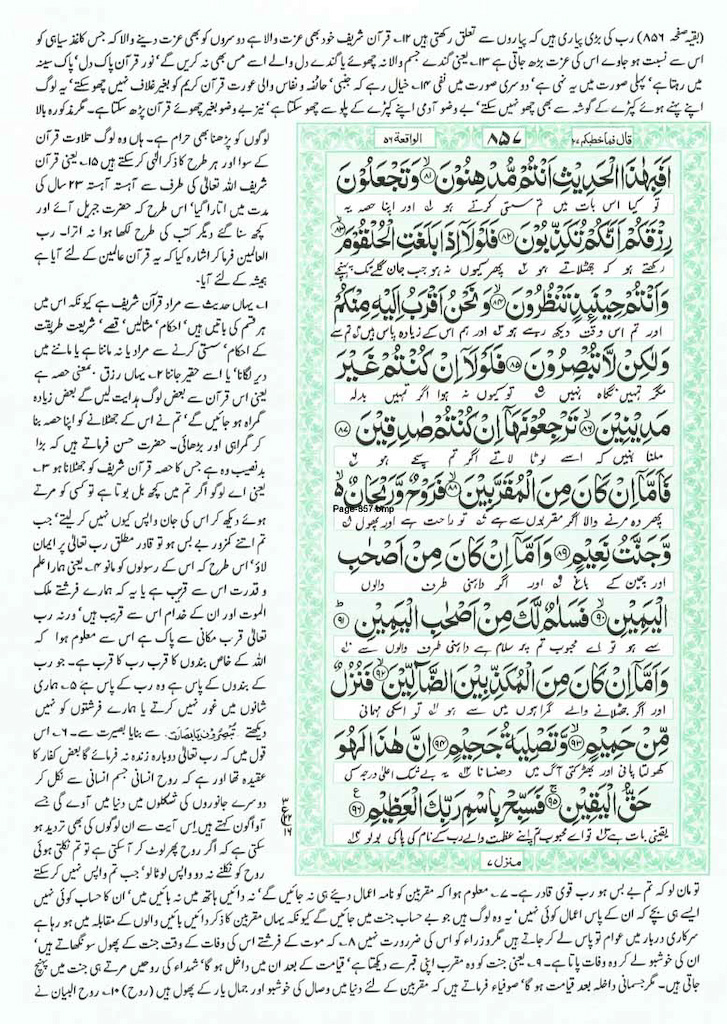 (بقیہ صفحہ ۸۵۶) رب کی بڑی پیاری ہیں کہ پیاروں سے تعلق رکھتی ہیں ۱۲؎ قرآن شریف خود بھی عزت والا ہے دوسروں کو بھی عزت دینے والا کہ جس کاغذ سیاہی کو
اس سے نسبت ہو جاوے اس کی عزت بڑھ جاتی ہے ۱۳؎ یعنی گندے جسم والا نہ چھوئے یا گندے دل والے اسے مس بھی نہ کریں گے' نور قرآن پاک دل' پاک سینہ
میں رہتا ہے' پہلی صورت میں یہ نہی ہے' دوسری صورت میں نفی ۱۴؎ خیال رہے کہ جنبی' حائضہ و نفاس والی عورت قرآن کریم کو بغیر غلاف نہیں چھو سکتے' یہ لوگ
اپنے پہنے ہوئے کپڑے کے گوشہ سے بھی چھو نہیں سکتے' بے وضو آدمی اپنے کپڑے کے پلو سے چھو سکتا ہے' نیز بے وضو بغیر چھوئے قرآن پڑھ سکتا ہے۔ مگر مذکورہ بالا
قال فما خطبکم ۲۷
۸۵۷
الواقعة ۵۶
اَفَبِهٰذَا الْحَدِيْثِ اَنْتُمْ مُّدْهِنُوْنَ ۸۱ وَتَجْعَلُوْنَ
تو کیا اس بات میں تم سستی کرتے ہو اور اپنا حصہ یہ
رِزْقَكُمْ اَنَّكُمْ تُكَذِّبُوْنَ ۸۲ فَلَوْلَاۤ اِذَا بَلَغَتِ الْحُلْقُوْمَ ۸۳
رکھتے ہو کہ جھٹلاتے ہو پھر کیوں نہ ہو جب جان گلے تک پہنچے
وَاَنْتُمْ حِيْنَئِذٍ تَنْظُرُوْنَ ۸۴ وَنَحْنُ اَقْرَبُ اِلَيْهِ مِنْكُمْ
اور تم اس وقت دیکھ رہے ہو اور ہم اس کے زیادہ پاس ہیں تم سے
وَلٰكِنْ لَّا تُبْصِرُوْنَ ۸۵ فَلَوْلَاۤ اِنْ كُنْتُمْ غَيْرَ
مگر تمہیں نگاہ نہیں تو کیوں نہ ہوا اگر تمہیں بدلہ
مَدِيْنِيْنَ ۸۶ تَرْجِعُوْنَهَاۤ اِنْ كُنْتُمْ صٰدِقِيْنَ ۸۷
ملنا نہیں کہ اسے لوٹا لاتے اگر تم سچے ہو
فَاَمَّاۤ اِنْ كَانَ مِنَ الْمُقَرَّبِيْنَ ۸۸ فَرَوْحٌ وَّرَيْحَانٌ
پھر وہ مرنے والا اگر مقربوں سے ہے تو راحت ہے اور پھول
Page-857.bmp
وَّجَنَّتُ نَعِيْمٍ ۸۹ وَاَمَّاۤ اِنْ كَانَ مِنْ اَصْحٰبِ
اور چین کے باغ اور اگر داہنی طرف والوں
الْيَمِيْنِ ۹۰ فَسَلٰمٌ لَّكَ مِنْ اَصْحٰبِ الْيَمِيْنِ ۹۱
سے ہو تو اے محبوب تم پر سلام ہے داہنی طرف والوں سے
وَاَمَّاۤ اِنْ كَانَ مِنَ الْمُكَذِّبِيْنَ الضَّآلِّيْنَ ۹۲ فَنُزُلٌ
اور اگر جھٹلانے والے گمراہوں میں سے ہو تو اسکی مہمانی
مِّنْ حَمِيْمٍ ۹۳ وَّتَصْلِيَةُ جَحِيْمٍ ۹۴ اِنَّ هٰذَا لَهُوَ
کھولتا پانی اور بھڑکتی آگ میں دھنسانا یہ بے شک اعلیٰ درجہ کی
حَقُّ الْيَقِيْنِ ۹۵ فَسَبِّحْ بِاسْمِ رَبِّكَ الْعَظِيْمِ ۹۶
یقینی بات ہے تو اے محبوب تم اپنے عظمت والے رب کے نام کی پاکی بولو
منزل ۷
لوگوں کو پڑھنا بھی حرام ہے۔ ہاں وہ لوگ تلاوت قرآن
کے سوا اور ہر طرح کا ذکر الٰہی کر سکتے ہیں ۱۵؎ یعنی قرآن
شریف اللہ تعالیٰ کی طرف سے آہستہ آہستہ ۲۳ سال کی
مدت میں اتارا گیا' اس طرح کہ حضرت جبریل آئے اور
کچھ سنا گئے دیگر کتب کی طرح لکھا ہوا نہ اترا۔ رب
العالمین فرما کر اشارہ کیا کہ یہ قرآن عالمین کے لئے آیا ہے
ہمیشہ کے لئے آیا۔
۱؎ یہاں حدیث سے مراد قرآن شریف ہے کیونکہ اس میں
ہر قسم کی باتیں ہیں' احکام' مثالیں' قصے' شریعت طریقت
کے احکام' سستی کرنے سے مراد یا نہ ماننا ہے یا ماننے میں
دیر لگانا' یا اسے حقیر جاننا ۲؎ یہاں رزق۔ بمعنی حصہ ہے
یعنی اس قرآن سے بعض لوگ ہدایت لیں گے بعض زیادہ
گمراہ ہو جائیں گے' تم نے اس کے جھٹلانے کو اپنا حصہ بنا
کر گمراہی اور بڑھائی۔ حضرت حسن فرماتے ہیں کہ بڑا
بدنصیب وہ ہے جس کا حصہ قرآن شریف کو جھٹلانا ہو ۳؎
یعنی اے لوگو اگر تم میں کچھ بل بوتا ہے تو کسی کو مرتے
ہوئے دیکھ کر اس کی جان واپس کیوں نہیں کر لیتے' جب
تم اتنے کمزور بے بس ہو تو قادر مطلق رب تعالیٰ پر ایمان
لاؤ' اس طرح کہ اس کے رسولوں کو مانو ۴؎ یعنی ہمارا علم
و قدرت اس سے قریب ہے یا یہ کہ ہمارے فرشتے ملک
الموت اور ان کے خدام اس سے قریب ہیں' ورنہ رب
تعالیٰ قرب مکانی سے پاک ہے اس سے معلوم ہوا کہ
اللہ کے خاص بندوں کا قرب رب کا قرب ہے۔ جو رب
کے بندوں کے پاس ہے وہ رب کے پاس ہے ۵؎ ہماری
شانوں میں غور نہیں کرتے یا ہمارے فرشتوں کو نہیں
دیکھتے تُبْصِرُوْنَ یا بصارت سے بنا یا بصیرت سے۔ ۶؎ اس
قول میں کہ رب تعالیٰ دوبارہ زندہ نہ فرمائے گا بعض کفار کا
عقیدہ تھا اور ہے کہ روح انسانی جسم انسانی سے نکل کر
دوسرے جانوروں کی شکلوں میں دنیا میں آوے گی جسے
آواگون کہتے ہیں اس آیت سے ان لوگوں کی بھی تردید ہو
سکتی ہے کہ اگر روح پھر لوٹ کر آ سکتی ہے تو تم نکلتی ہوئی
روح کو نکلنے نہ دو واپس لوٹا لو' جب تم واپس نہیں کر سکتے
تو مان لو کہ تم بے بس ہو رب قوی قادر ہے۔ ۷؎ معلوم ہوا کہ مقربین کو نامہ اعمال دیئے ہی نہ جائیں گے' نہ دائیں ہاتھ میں نہ بائیں میں' ان کا حساب کوئی نہیں
ایسے ہی بچے کہ ان کے پاس اعمال کوئی نہیں' یہ وہ لوگ ہیں جو بے حساب جنت میں جائیں گے کیونکہ یہاں مقربین کا ذکر دائیں بائیں والوں کے مقابلہ میں ہو رہا ہے
سرکاری دربار میں عوام تو پاس لے کر جاتے ہیں مگر وزراء کو اس کی ضرورت نہیں ۸؎ کہ موت کے فرشتے اس کی وفات کے وقت جنت کے پھول سونگھاتے ہیں'
ان کی خوشبو لے کر وہ وفات پاتا ہے۔ ۹؎ یعنی جنت کو وہ مقرب اپنی قبر سے دیکھتا ہے' قیامت کے بعد ان میں داخل ہو گا' شہداء کی روحیں مرتے ہی جنت میں پہنچ
جاتی ہیں۔ مگر جسمانی داخلہ بعد قیامت ہو گا' صوفیاء فرماتے ہیں کہ مقربین کے لئے دنیا میں وصال کی خوشبو اور جمال یار کے پھول ہیں (روح) ۱۰؎ روح البیان نے